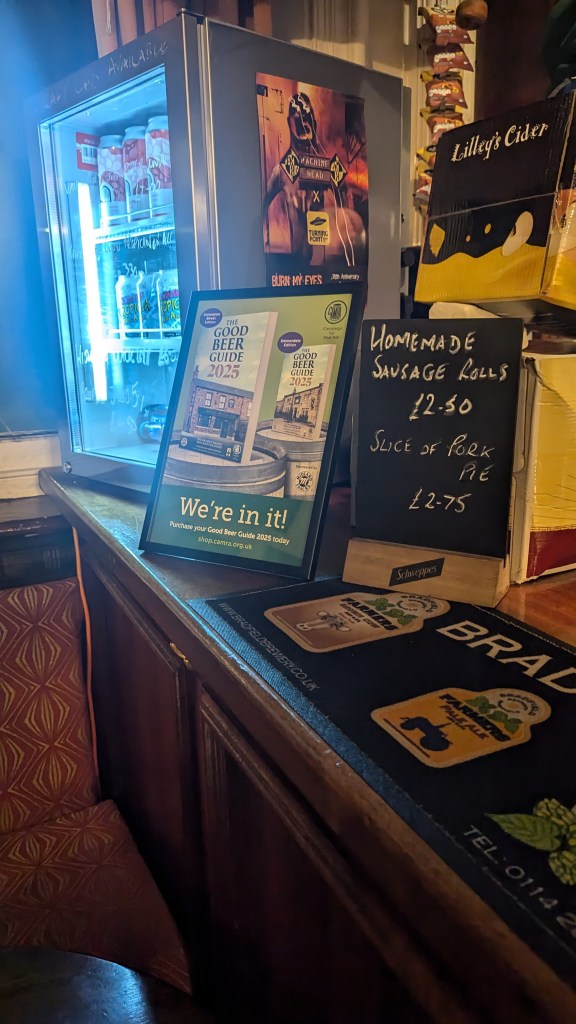 CRAFT CANS AVAILABLE
MACHINE
HEAD
X
TURNING
POINT
BURN MY EYES
Lilley's Cider
THE
GOOD
BEER
GUIDE
2025
THE
GOOD
BEER
GUIDE
2025
We're in it!
Purchase your Good Beer Guide 2025 today
shop.camra.org.uk
HOMEMADE
SAUSAGE ROLLS
£2.50
SLICE OF PORK
PIE
£2-75
Schweppes
WWW.BRADFIELDBREWERY.CO.UK
FARMERS
BRAD
FARMERS
PALE ALE
TEL: 0114 2